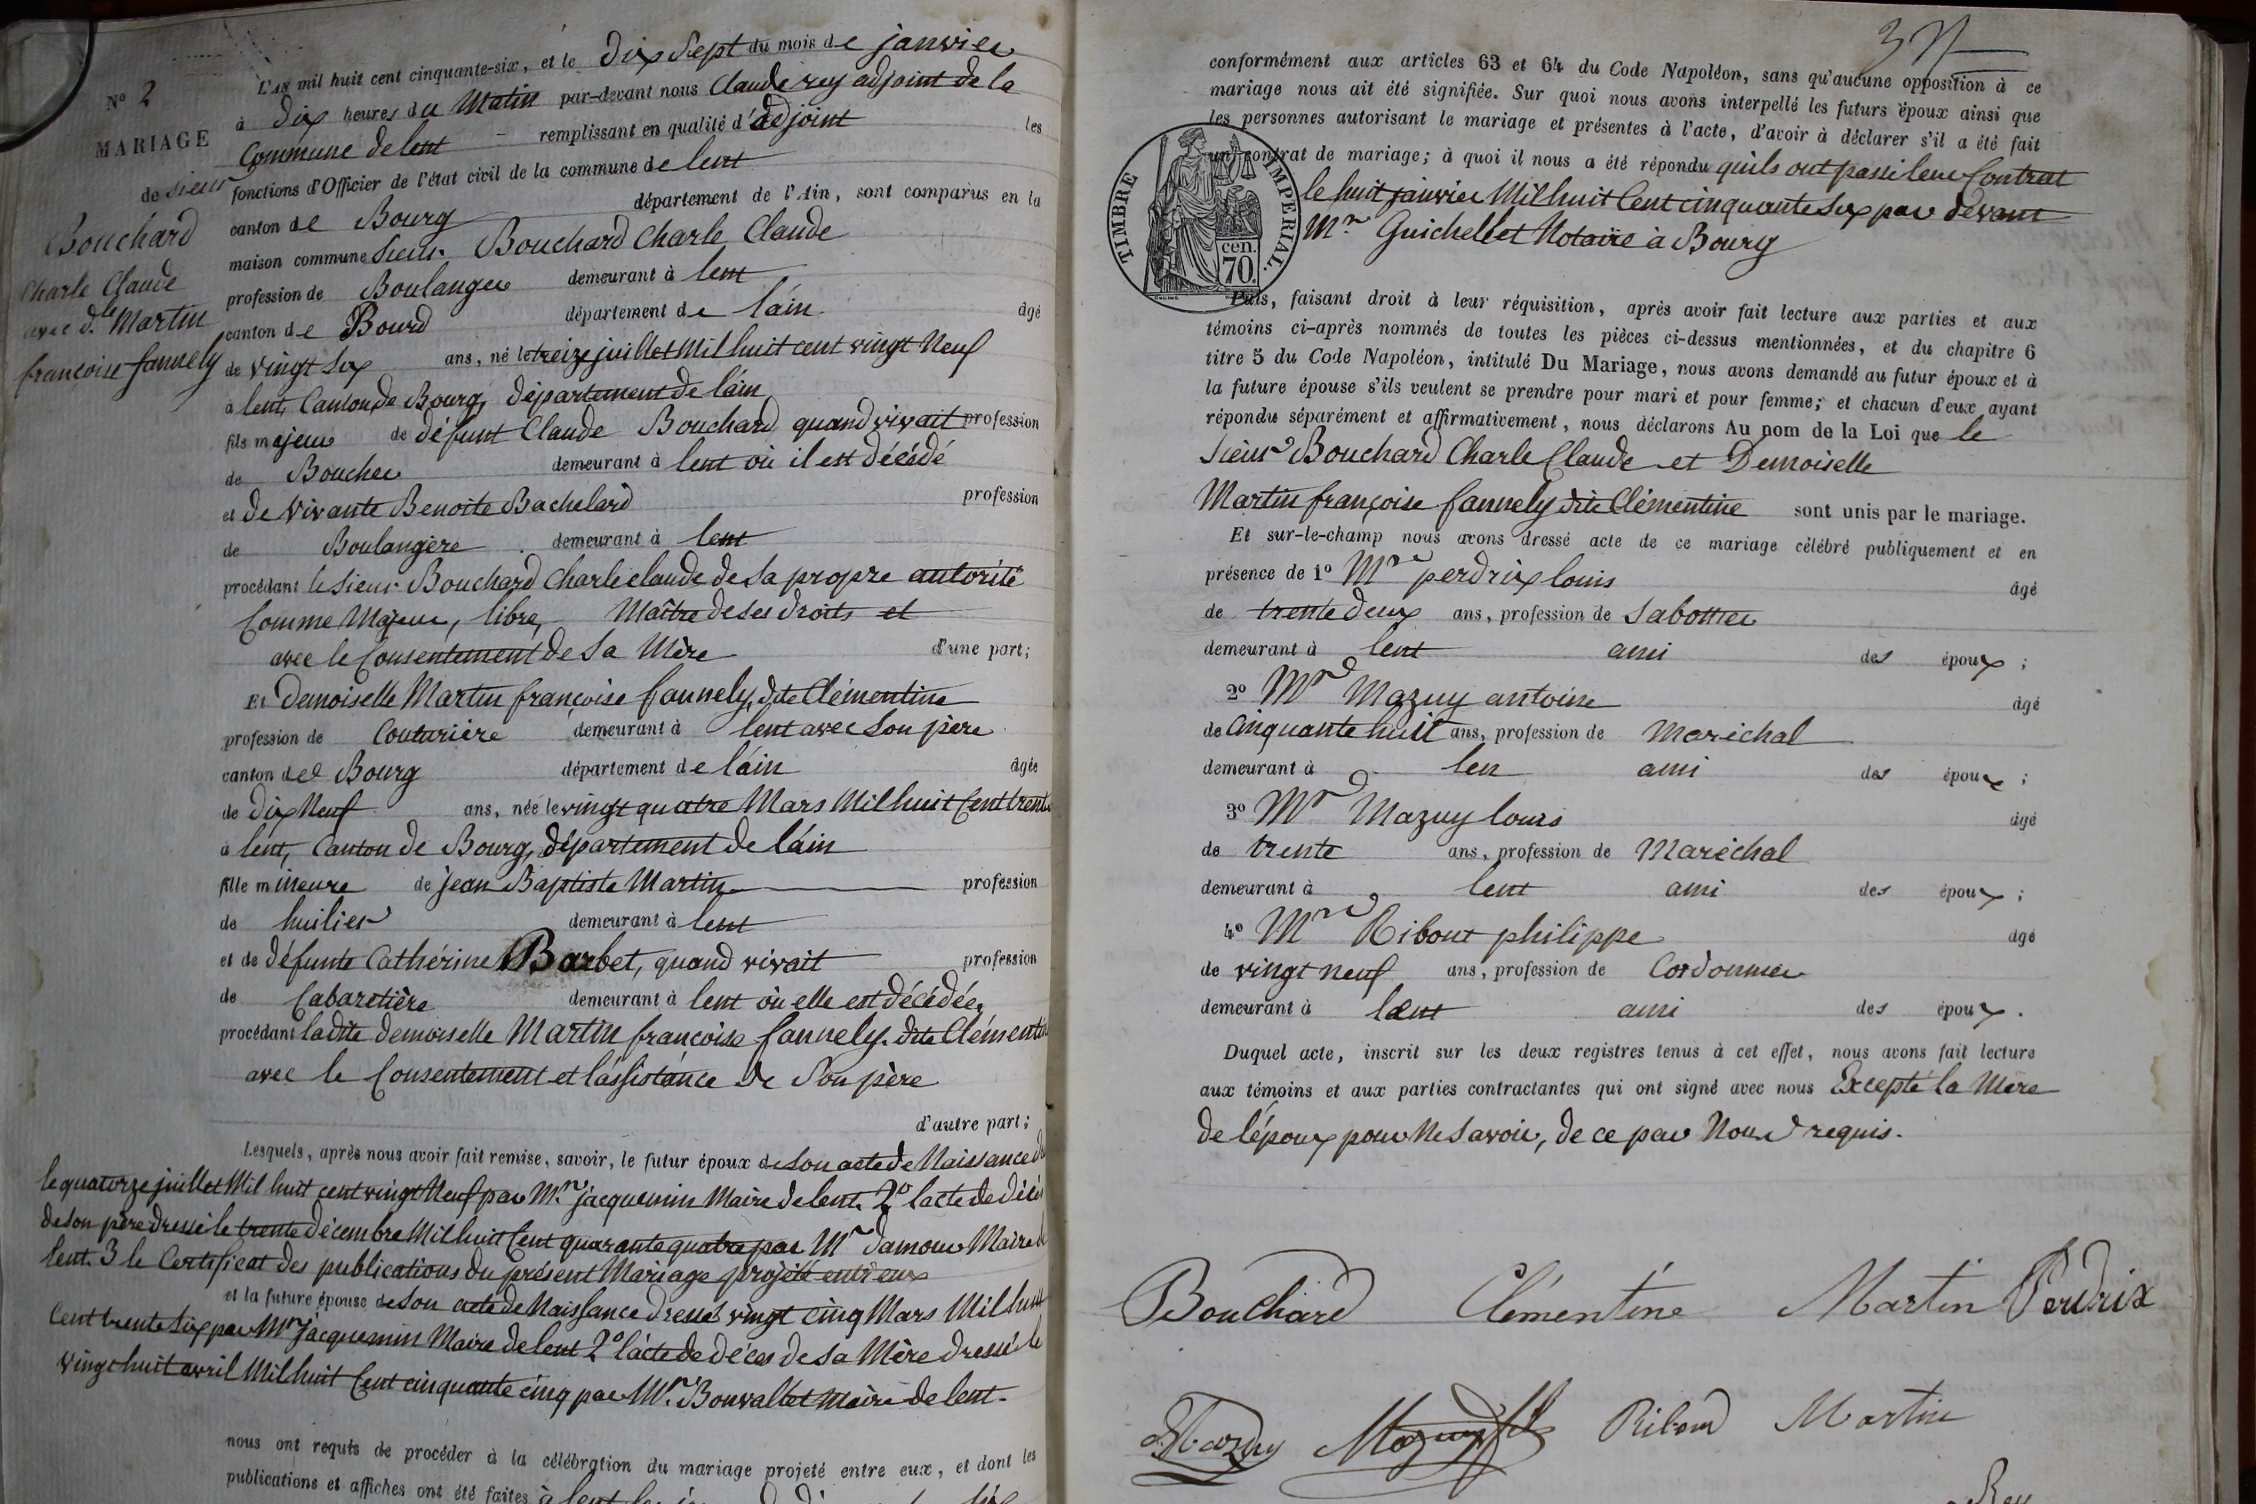 N° 2
MARIAGE
de sieur
Bouchard
Charle Claude
avec d.lle Martin
françoise fannely
L'AN mil huit cent cinquante-six, et le dix Sept du mois de janvier
à dix heures du Matin par-devant nous Claude rey adjoint de la
Commune de lent remplissant en qualité d'adjoint les
fonctions d'Officier de l'état civil de la commune de lent
canton de Bourg département de l'Ain, sont comparus en la
maison commune Sieur Bouchard Charle Claude
profession de Boulanger demeurant à lent
canton de Bourd département de láin âgé
de vingt six ans, né le treize juillet Mil huit cent vingt Neuf
à lent, Canton de Bourg, département de láin
fils majeur de défunt Claude Bouchard quand vivait profession
de Boucher demeurant à lent où il est décédé
et de vivante Benoite Bachelard profession
de Boulangère demeurant à lent
procédant le sieur Bouchard Charle claude de sa propre autorité
Comme Majeur, libre, Maître de ses droits et
avec le Consentement de Sa Mère d'une part;
Et demoiselle Martin françoise fannely, dite Clémentine
profession de Couturière demeurant à lent avec Son père
canton de Bourg département de láin âgée
de dix Neuf ans, née le vingt quatre Mars Mil huit Cent trente
à lent, Canton de Bourg, département de láin
fille mineure de jean Baptiste Martin profession
de huilier demeurant à lent
et de défunte Cathérine Barbet, quand vivait profession
de Cabaretière demeurant à lent où elle est décédée,
procédant ladite demoiselle Martin françoise fannely. dite Clémentine
avec le Consentement et lássistance de Son père
d'autre part;
Lesquels, après nous avoir fait remise, savoir, le futur époux de Son acte de Naissance
le quatorze juillet Mil huit cent vingt Neuf par M.r jacquemin Maire de lent. 2° lacte de décés
de Son père dressé le trente décembre Mil huit Cent quarante quatre par M.r damour Maire de
lent. 3 le Certificat des publications du présent Mariage projeté entr'eux
et la future épouse de Son acte de Naissance dressé vingt cinq Mars Mil huit
Cent trente Six par M.r jacquemin Maire de lent 2° lácte de déces de Sa Mère dressé le
vingt huit avril Mil huit Cent cinquante cinq par M.r Bouvallet Maire de lent.
nous ont requis de procéder à la célébration du mariage projeté entre eux, et dont les
publications et affiches ont été faites à lent
37
conformément aux articles 63 et 64 du Code Napoléon, sans qu'aucune opposition à ce
mariage nous ait été signifiée. Sur quoi nous avons interpellé les futurs époux ainsi que
les personnes autorisant le mariage et présentes à l'acte, d'avoir à déclarer s'il a été fait
un contrat de mariage; à quoi il nous a été répondu quils ont passé leur Contrat
le huit janvier Mil huit Cent cinquante Six par devant
M.r Guichellet Notaire à Bourg
TIMBRE IMPERIAL.
70 cen.
Puis, faisant droit à leur réquisition, après avoir fait lecture aux parties et aux
témoins ci-après nommés de toutes les pièces ci-dessus mentionnées, et du chapitre 6
titre 5 du Code Napoléon, intitulé Du Mariage, nous avons demandé au futur époux et à
la future épouse s'ils veulent se prendre pour mari et pour femme; et chacun d'eux ayant
répondu séparément et affirmativement, nous déclarons Au nom de la Loi que le
Sieur Bouchard Charle Claude et Demoiselle
Martin françoise fannely dite Clémentine sont unis par le mariage.
Et sur-le-champ nous avons dressé acte de ce mariage célébré publiquement et en
présence de 1° M.r perdrix louis âgé
de trente deux ans, profession de Sabottier
demeurant à lent ami des époux;
2° M.r Mazuy antoine âgé
de Cinquante huit ans, profession de Maréchal
demeurant à len ami des époux;
3° M.r Mazuy louis âgé
de trente ans, profession de Maréchal
demeurant à lent ami des époux;
4° M.r Ribout philippe âgé
de vingt neuf ans, profession de Cordonnier
demeurant à lent ami des époux.
Duquel acte, inscrit sur les deux registres tenus à cet effet, nous avons fait lecture
aux témoins et aux parties contractantes qui ont signé avec nous Excepté la Mère
de lépoux pour Ne Savoir, de ce par Nous requis.
Bouchard Clémentine Martin Perdrix
Mazuy Mazuy Riboud Martin
Rey